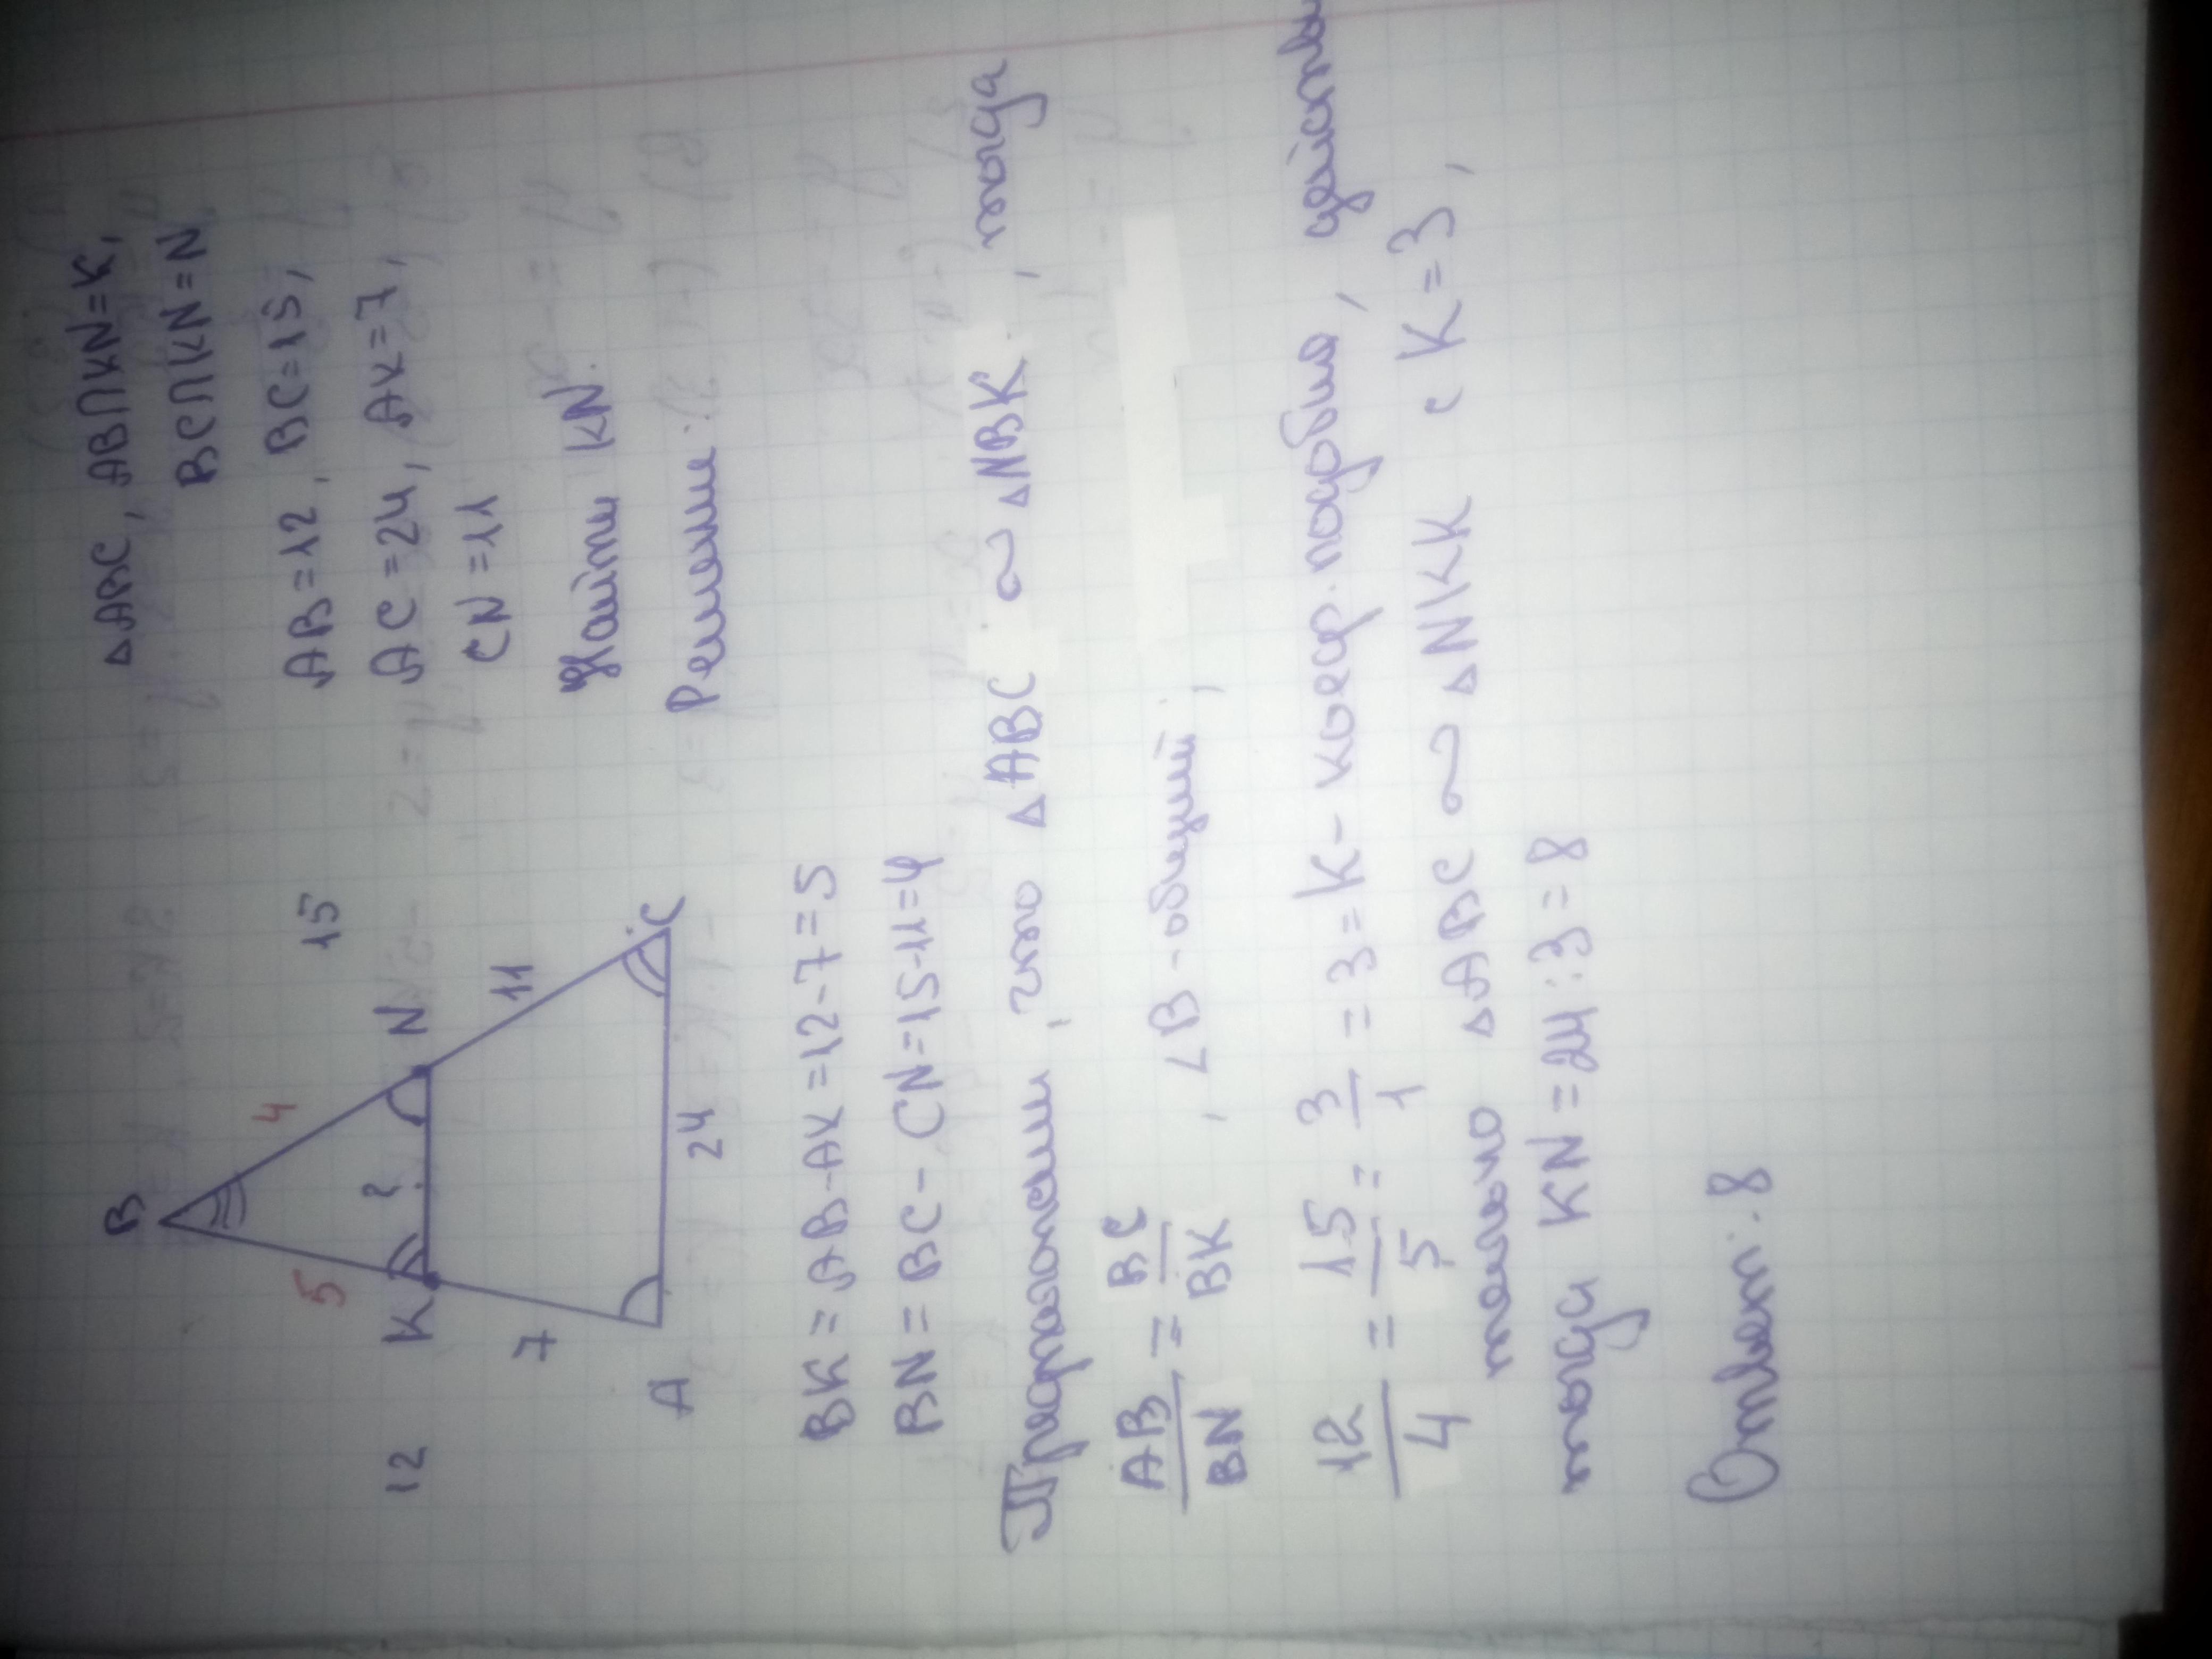 B
5
4
12
K
?
N
15
7
11
A
24
C
△ABC, AB∩KN=K,
BC∩KN=N
AB=12, BC=15,
AC=24, AK=7,
CN=11
Найти KN.
Решение:
BK = AB-AK=12-7=5
BN = BC-CN=15-11=4
Предположим, что △ABC ∾ △NBK, тогда
AB/BN = BC/BK, ∠B-общий,
12/4 = 15/5 = 3/1 = 3 = K - коэф. подобия, действи
тельно △ABC ∾ △NKK с K=3,
тогда KN=24:3=8
Ответ: 8